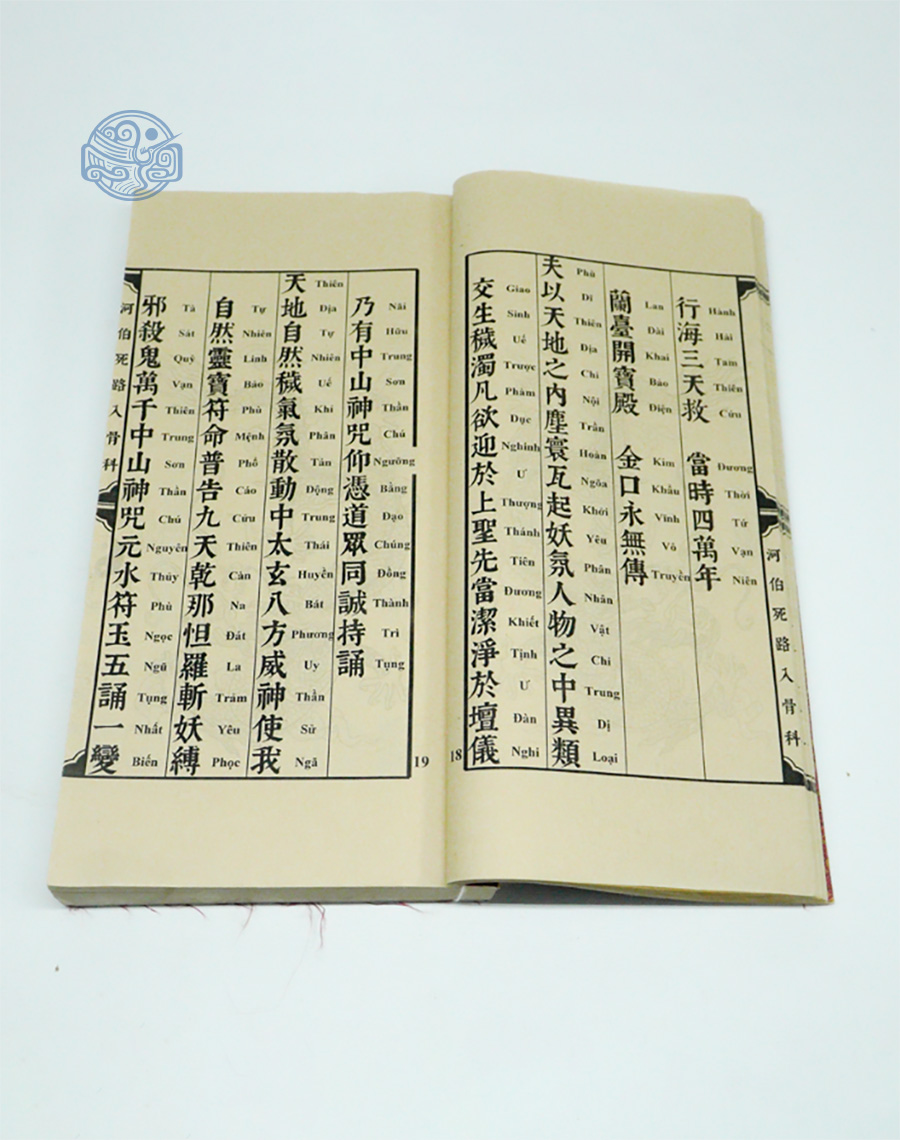 河伯死路入骨科
行海三天救 當時四萬年
Hành Hải Tam Thiên Cứu Đương Thời Tứ Vạn Niên
蘭臺開寶殿 金口永無傳
Lan Đài Khai Bảo Điện Kim Khẩu Vĩnh Vô Truyền
夫以天地之內塵寰瓦起妖氛人物之中異類
Phù Dĩ Thiên Địa Chi Nội Trần Hoàn Ngõa Khởi Yêu Phân Nhân Vật Chi Trung Dị Loại
交生穢濁凡欲迎於上聖先當潔淨於壇儀
Giao Sinh Uế Trược Phàm Dục Nghinh Ư Thượng Thánh Tiên Đương Khiết Tịnh Ư Đàn Nghi
18
19
乃有中山神咒仰憑道眾同誠持誦
Nãi Hữu Trung Sơn Thần Chú Ngưỡng Bằng Đạo Chúng Đồng Thành Trì Tụng
天地自然穢氣氛散動中太玄八方威神使我
Thiên Địa Tự Nhiên Uế Khí Phân Tán Động Trung Thái Huyền Bát Phương Uy Thần Sử Ngã
自然靈寶符命普告九天乾那怛羅斬妖縛
Tự Nhiên Linh Bảo Phù Mệnh Phổ Cáo Cửu Thiên Càn Na Đát La Trảm Yêu Phọc
邪殺鬼萬千中山神咒元水符玉五誦一變
Tà Sát Quỷ Vạn Thiên Trung Sơn Thần Chú Nguyên Thủy Phù Ngọc Ngũ Tụng Nhất Biến
河伯死路入骨科